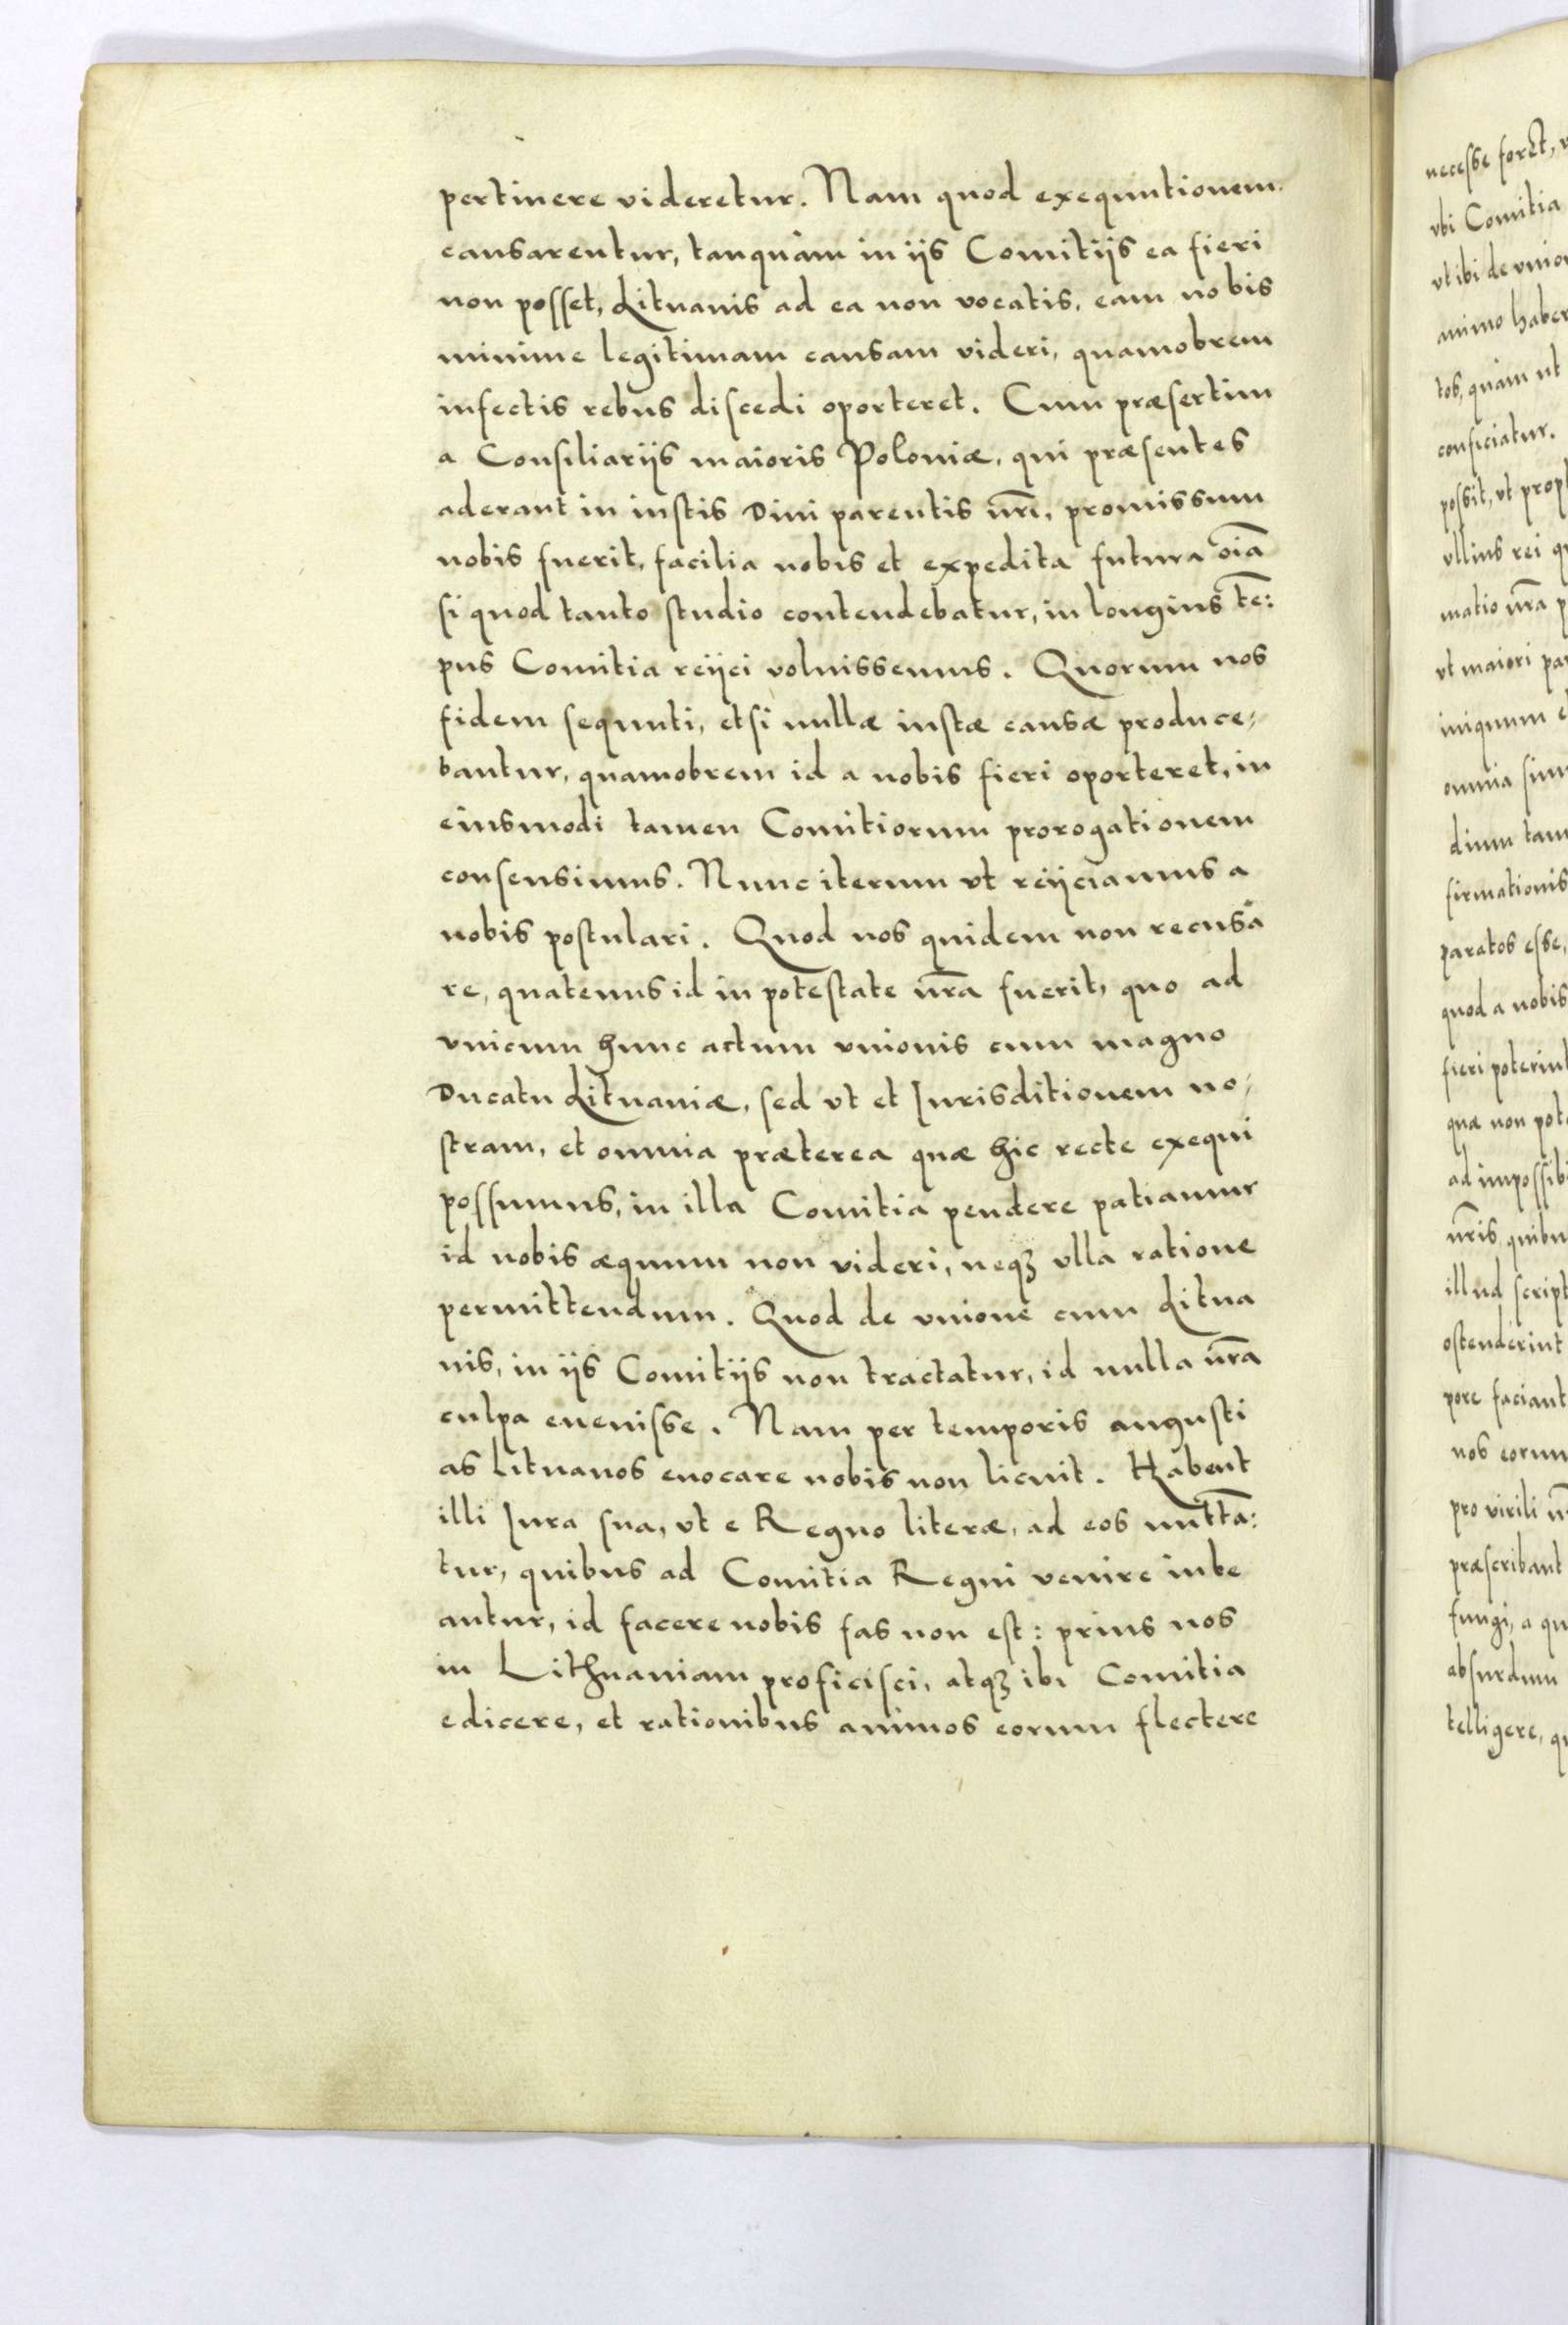 pertinere videretur. Nam quod exequutionem
causarentur, tanquàm in ijs Comitijs ea fieri
non posset, Lituanis ad ea non vocatis, eam nobis
minime legitimam causam videri, quamobrem
infectis rebus discedi oporteret. Cum præsertim
a Consiliarijs maioris Poloniæ, qui præsentes
aderant in iustis Diui parentis nr̃i, promissum
nobis fuerit, facilia nobis et expedita futura oı̃a
si quod tanto studio contendebatur, in longius tẽ:
pus Comitia reijci voluissemus. Quorum nos
fidem sequuti, etsi nullæ iustæ causæ produce,
bantur, quamobrem id a nobis fieri oporteret, in
eiusmodi tamen Comitiorum prorogationem
consensimus. Nunc iterum vt reijciamus a
nobis postulari. Quod nos quidem non recusa
re, quatenus id in potestate nr̃a fuerit, quo ad
vnicum hunc actum vnionis cum magno
Ducatu Lituaniæ, sed vt et Iurisditionem no,
stram, et omnia præterea quæ hic recte exequi
possumus, in illa Comitia pendere patiamur
id nobis æquum non videri, neqꝫ vlla ratione
permittendum. Quod de vnione cum Litua
nis, in ijs Comitijs non tractatur, id nulla nr̃a
culpa euenisse. Nam per temporis angusti
as Lituanos euocare nobis non licuit. Habent
illi Iura sua, vt e Regno literæ, ad eos mittã:
tur, quibus ad Comitia Regni venire iube
antur, id facere nobis fas non est: prius nos
in Lithuaniam proficisci, atqꝫ ibi Comitia
edicere, et rationibus animos eorum flectere
necesse foret,
vbi Comitia
vt ibi de vnion
animo haber
tos, quàm ut
conficiatur.
possit, vt prop
vllius rei qu
matio nr̃a p
vt maiori par
iniquum e
omnia sim
dium tam
firmationis
paratos esse,
quod a nobis
fieri poterint
quæ non pote
ad impossibi
nr̃is, quibu
illud script
ostenderint
pore faciant
nos eorum
pro virili n
præscribant
fungi, a qu
absurdum
telligere, qu